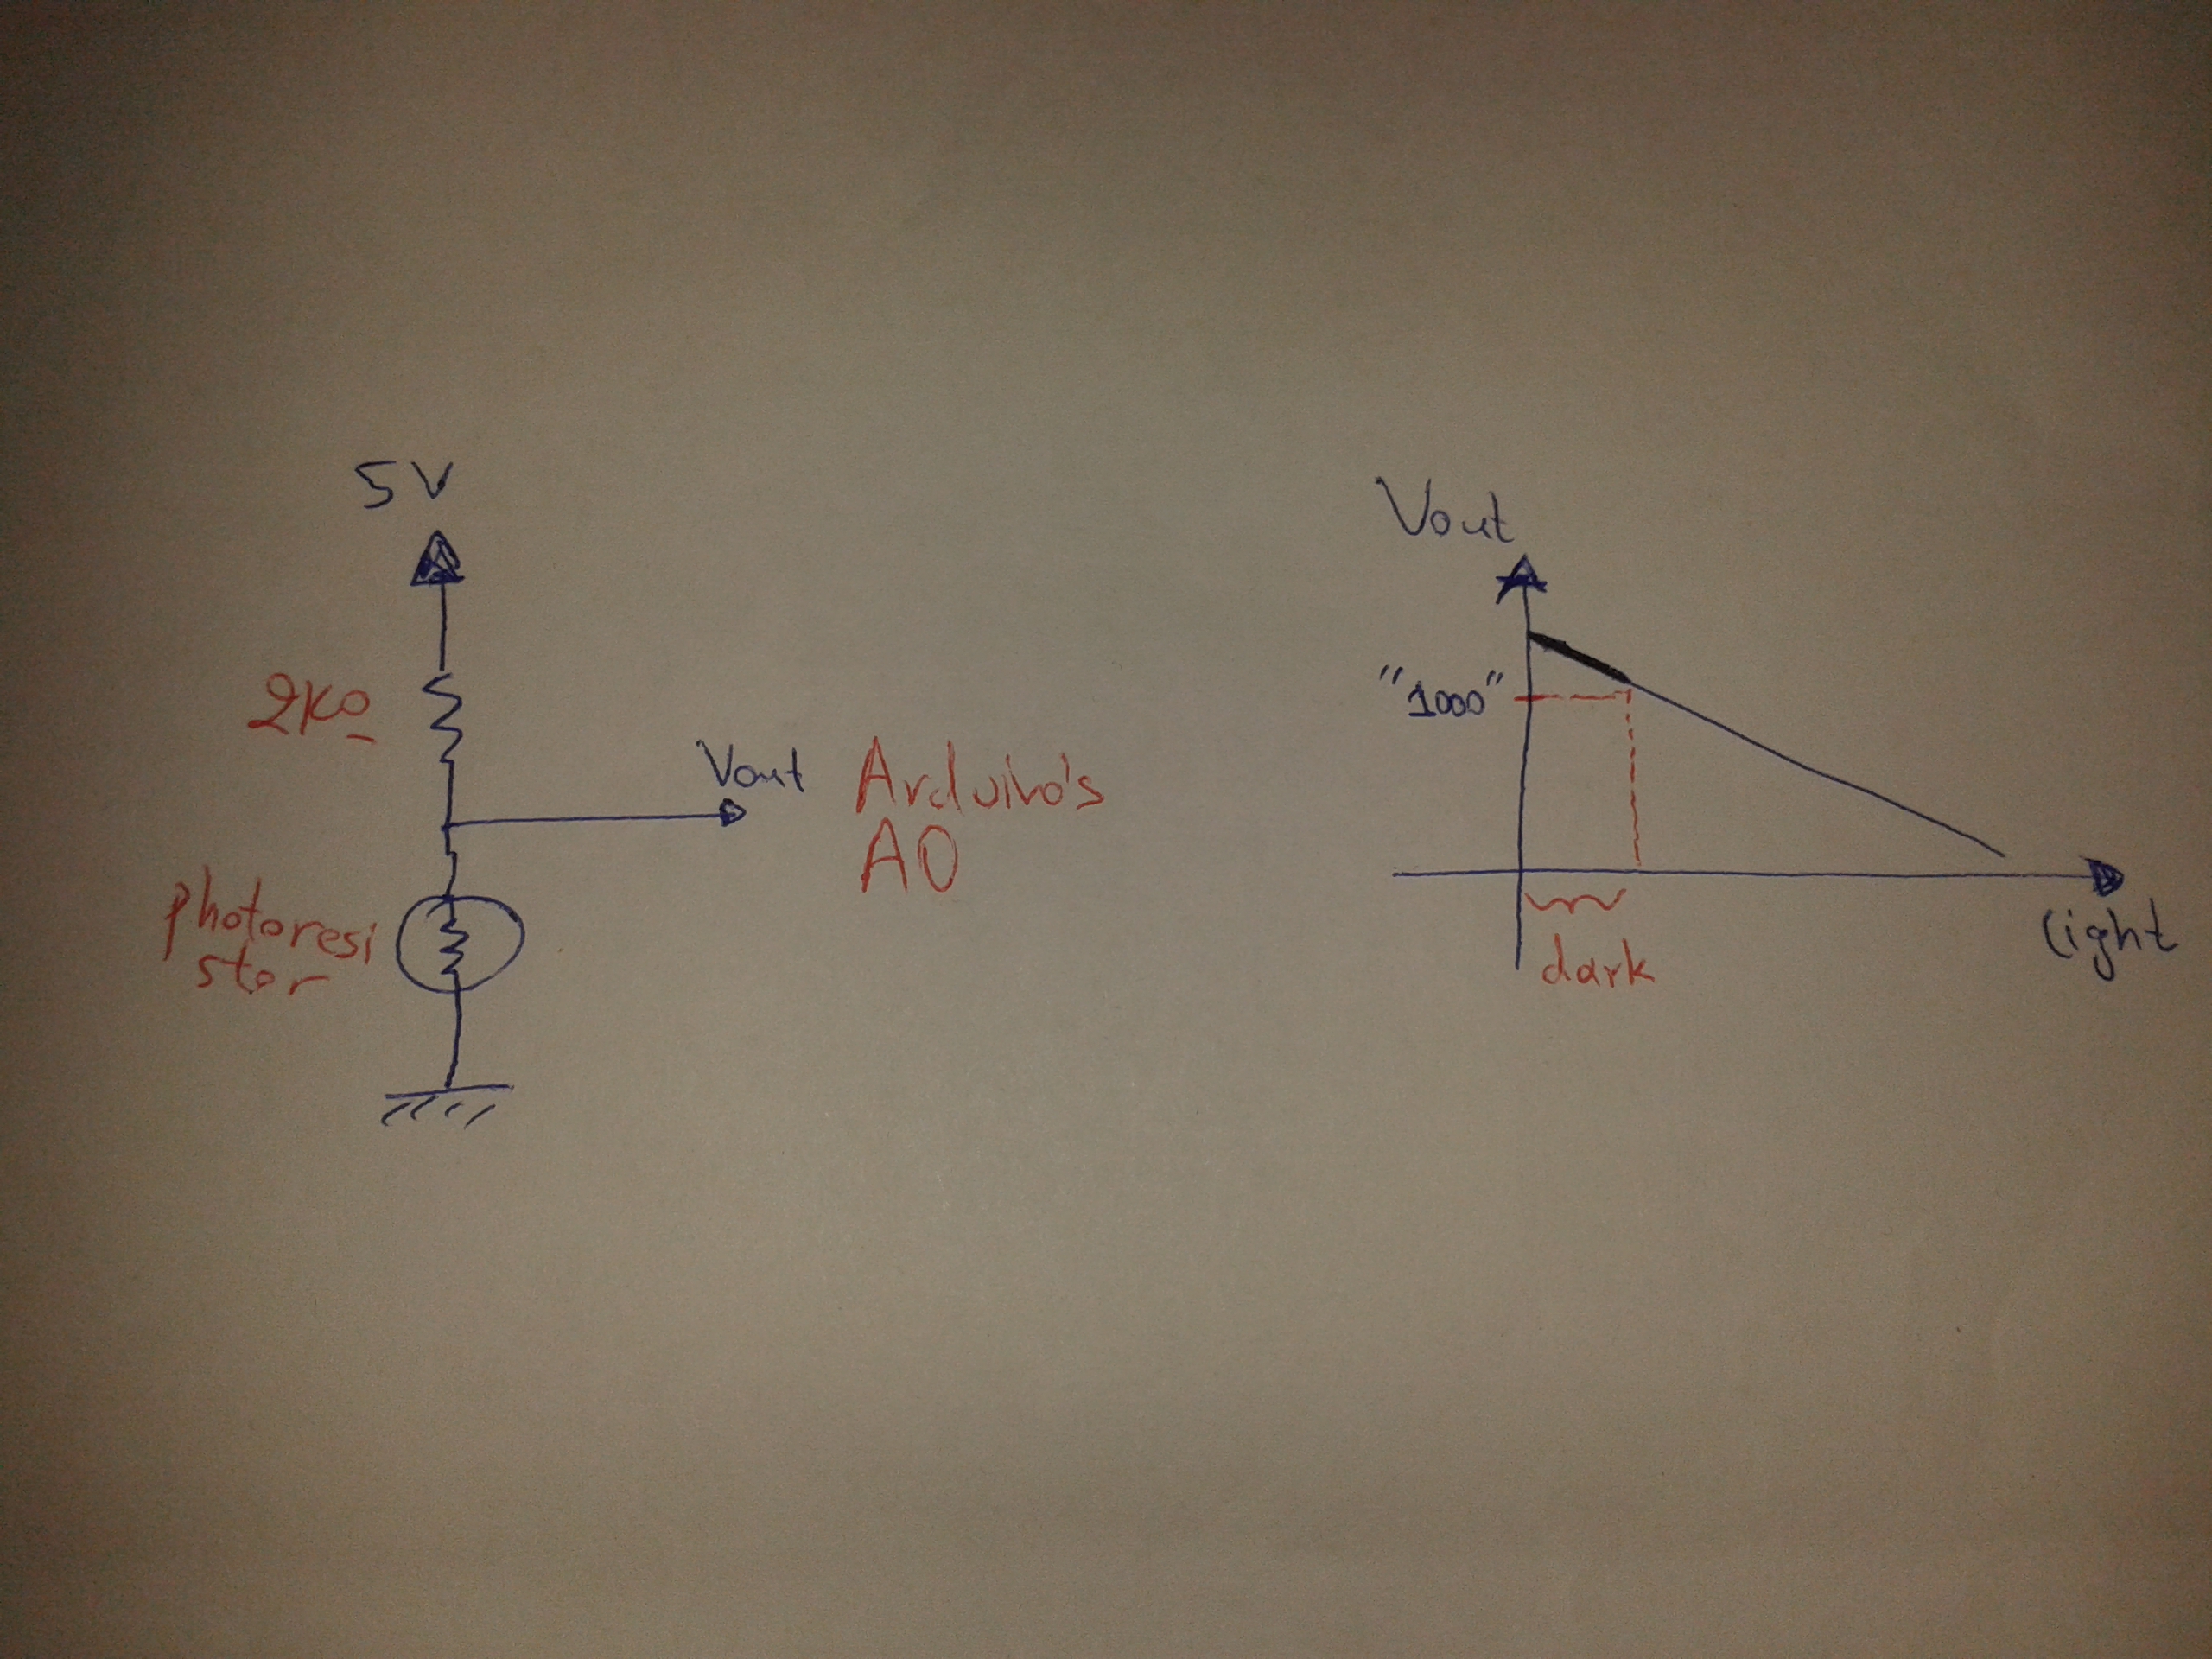 5V
2KΩ
Vout Arduino's
A0
photoresi
stor
Vout
"1000"
dark
light